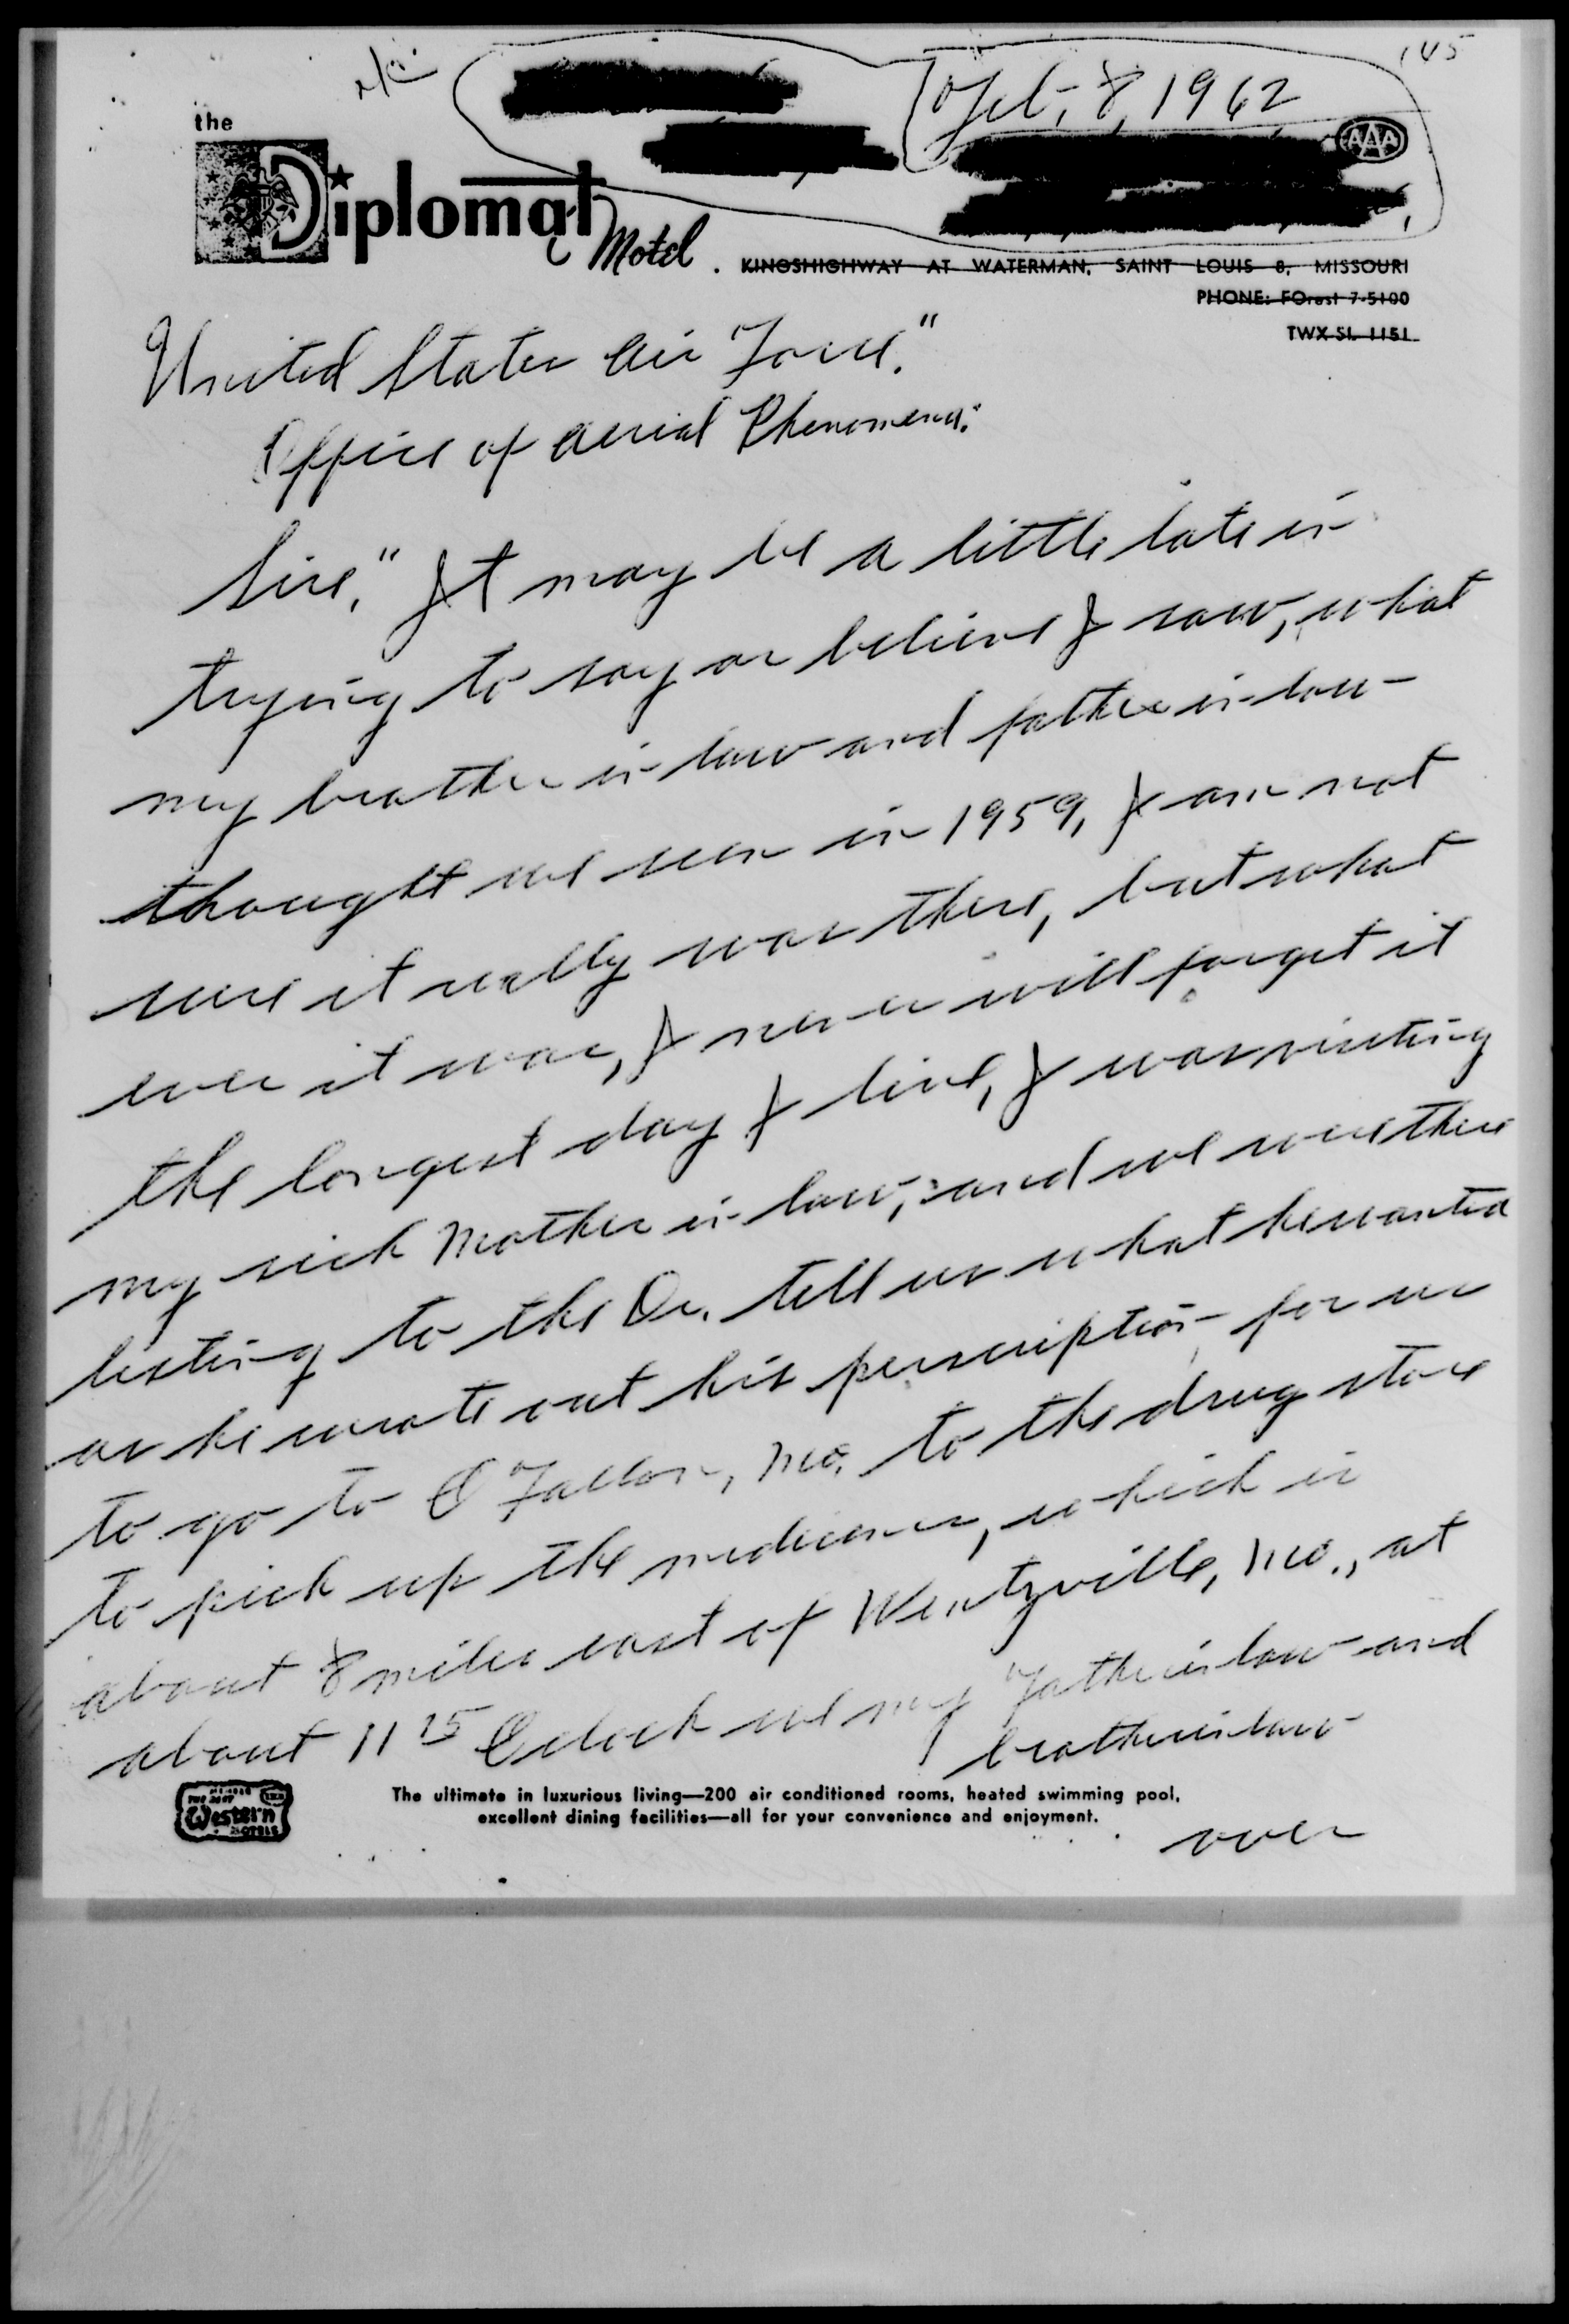 145
Feb. 8, 1962
the
Diplomat Motel.
AAA
KINGSHIGHWAY AT WATERMAN, SAINT LOUIS 8, MISSOURI
PHONE: FOrest 7-5100
TWX SL 1151
United States Air Force."
Office of Aerial Phenomena:
Sirs," It may be a little late in
trying to say or believe I saw, what
my brother in law and father in law
thought we seen in 1959, I am not
sure it really was there, but what
ever it was, I never will forget it
the longest day I live, I was visiting
my sick Mother in law, and we were there
listing to the Dr. tell us what he wanted
as he wrote out his perscription for us
to go to O Fallon, Mo. to the drug store
to pick up the medicines, which is
about 8 miles east of Wentzville, Mo., at
about 11 15 Oclock we my Father in law and
brother in law
Western
The ultimate in luxurious living—200 air conditioned rooms, heated swimming pool,
excellent dining facilities—all for your convenience and enjoyment.
over